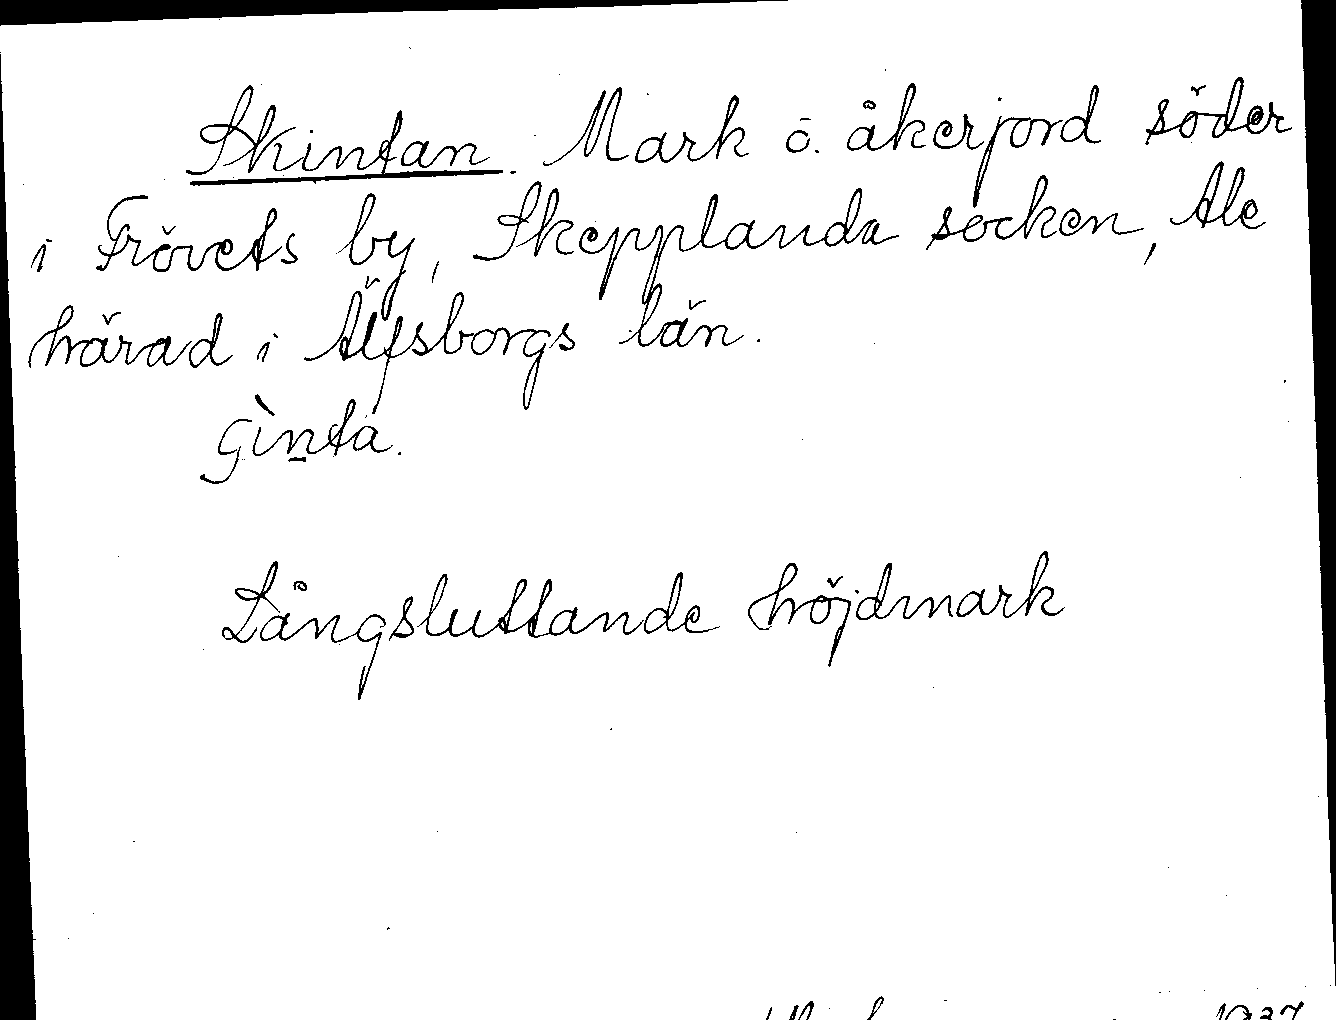 Skintan. Mark o. åkerjord söder
i Frövets by, Skepplanda socken, Ale
härad i Älfsborgs län.
çìnta.
Långsluttande höjdmark
1937